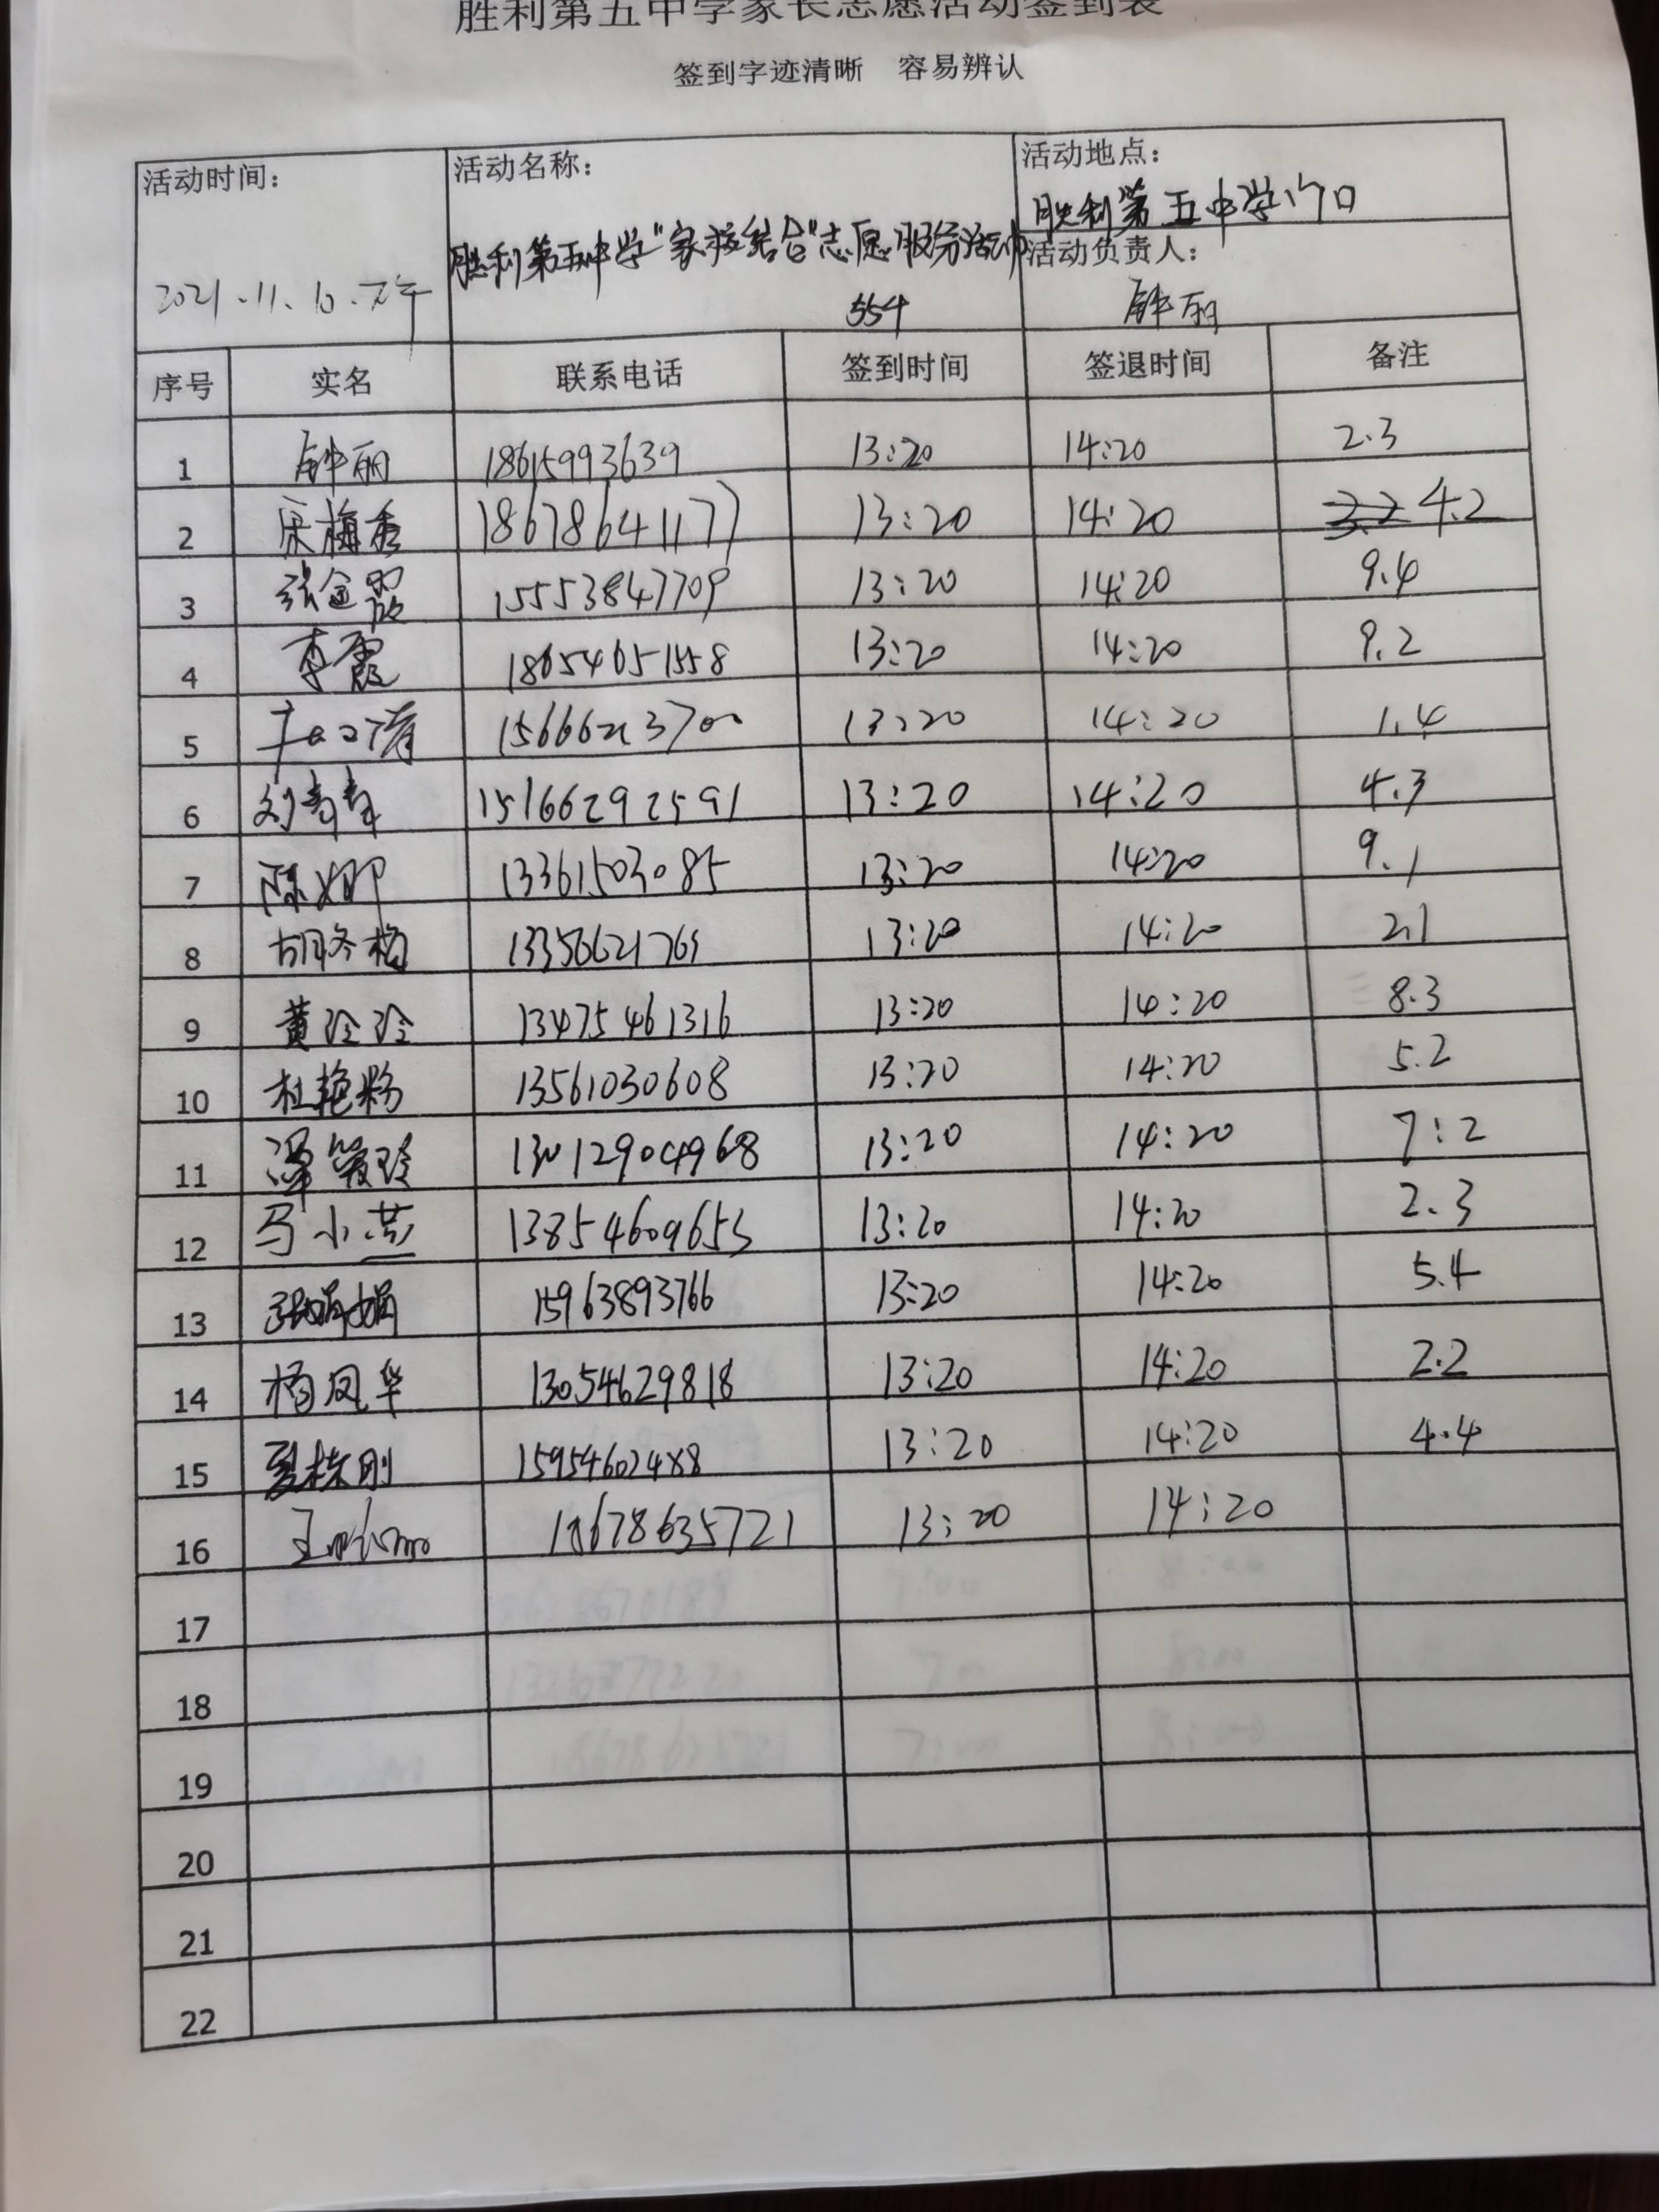 胜利第五中学家长志愿活动签到表
签到字迹清晰 容易辨认
活动时间： 活动名称： 活动地点：
胜利第五中学门口
胜利第五中学"家校结合"志愿服务活动 活动负责人：
2021.11.10.下午 554 钟丽
序号 实名 联系电话 签到时间 签退时间 备注
1 钟丽 18615993639 13:20 14:20 2.3
2 宋梅香 18678641177 13:20 14:20 4.2
3 张金霞 15553847709 13:20 14:20 9.4
4 李霞 18654651558 13:20 14:20 9.2
5 13:20 14:20 1.4
6 刘青青 15166292591 13:20 14:20 4.3
7 陈娜 13361503085 13:20 14:20 9.1
8 胡冬梅 13356621769 13:20 14:20 2.1
9 黄玲玲 13475461316 13:20 14:20 8.3
10 杜艳粉 13561030608 13:20 14:20 5.2
11 13012904968 13:20 14:20 7:2
12 马小燕 13854609653 13:20 14:20 2.3
13 张娟娟 15963893766 13:20 14:20 5.4
14 杨凤华 13054629818 13:20 14:20 2.2
15 夏栋刚 15954602488 13:20 14:20 4.4
16 18678635721 13:20 14:20
17
18
19
20
21
22